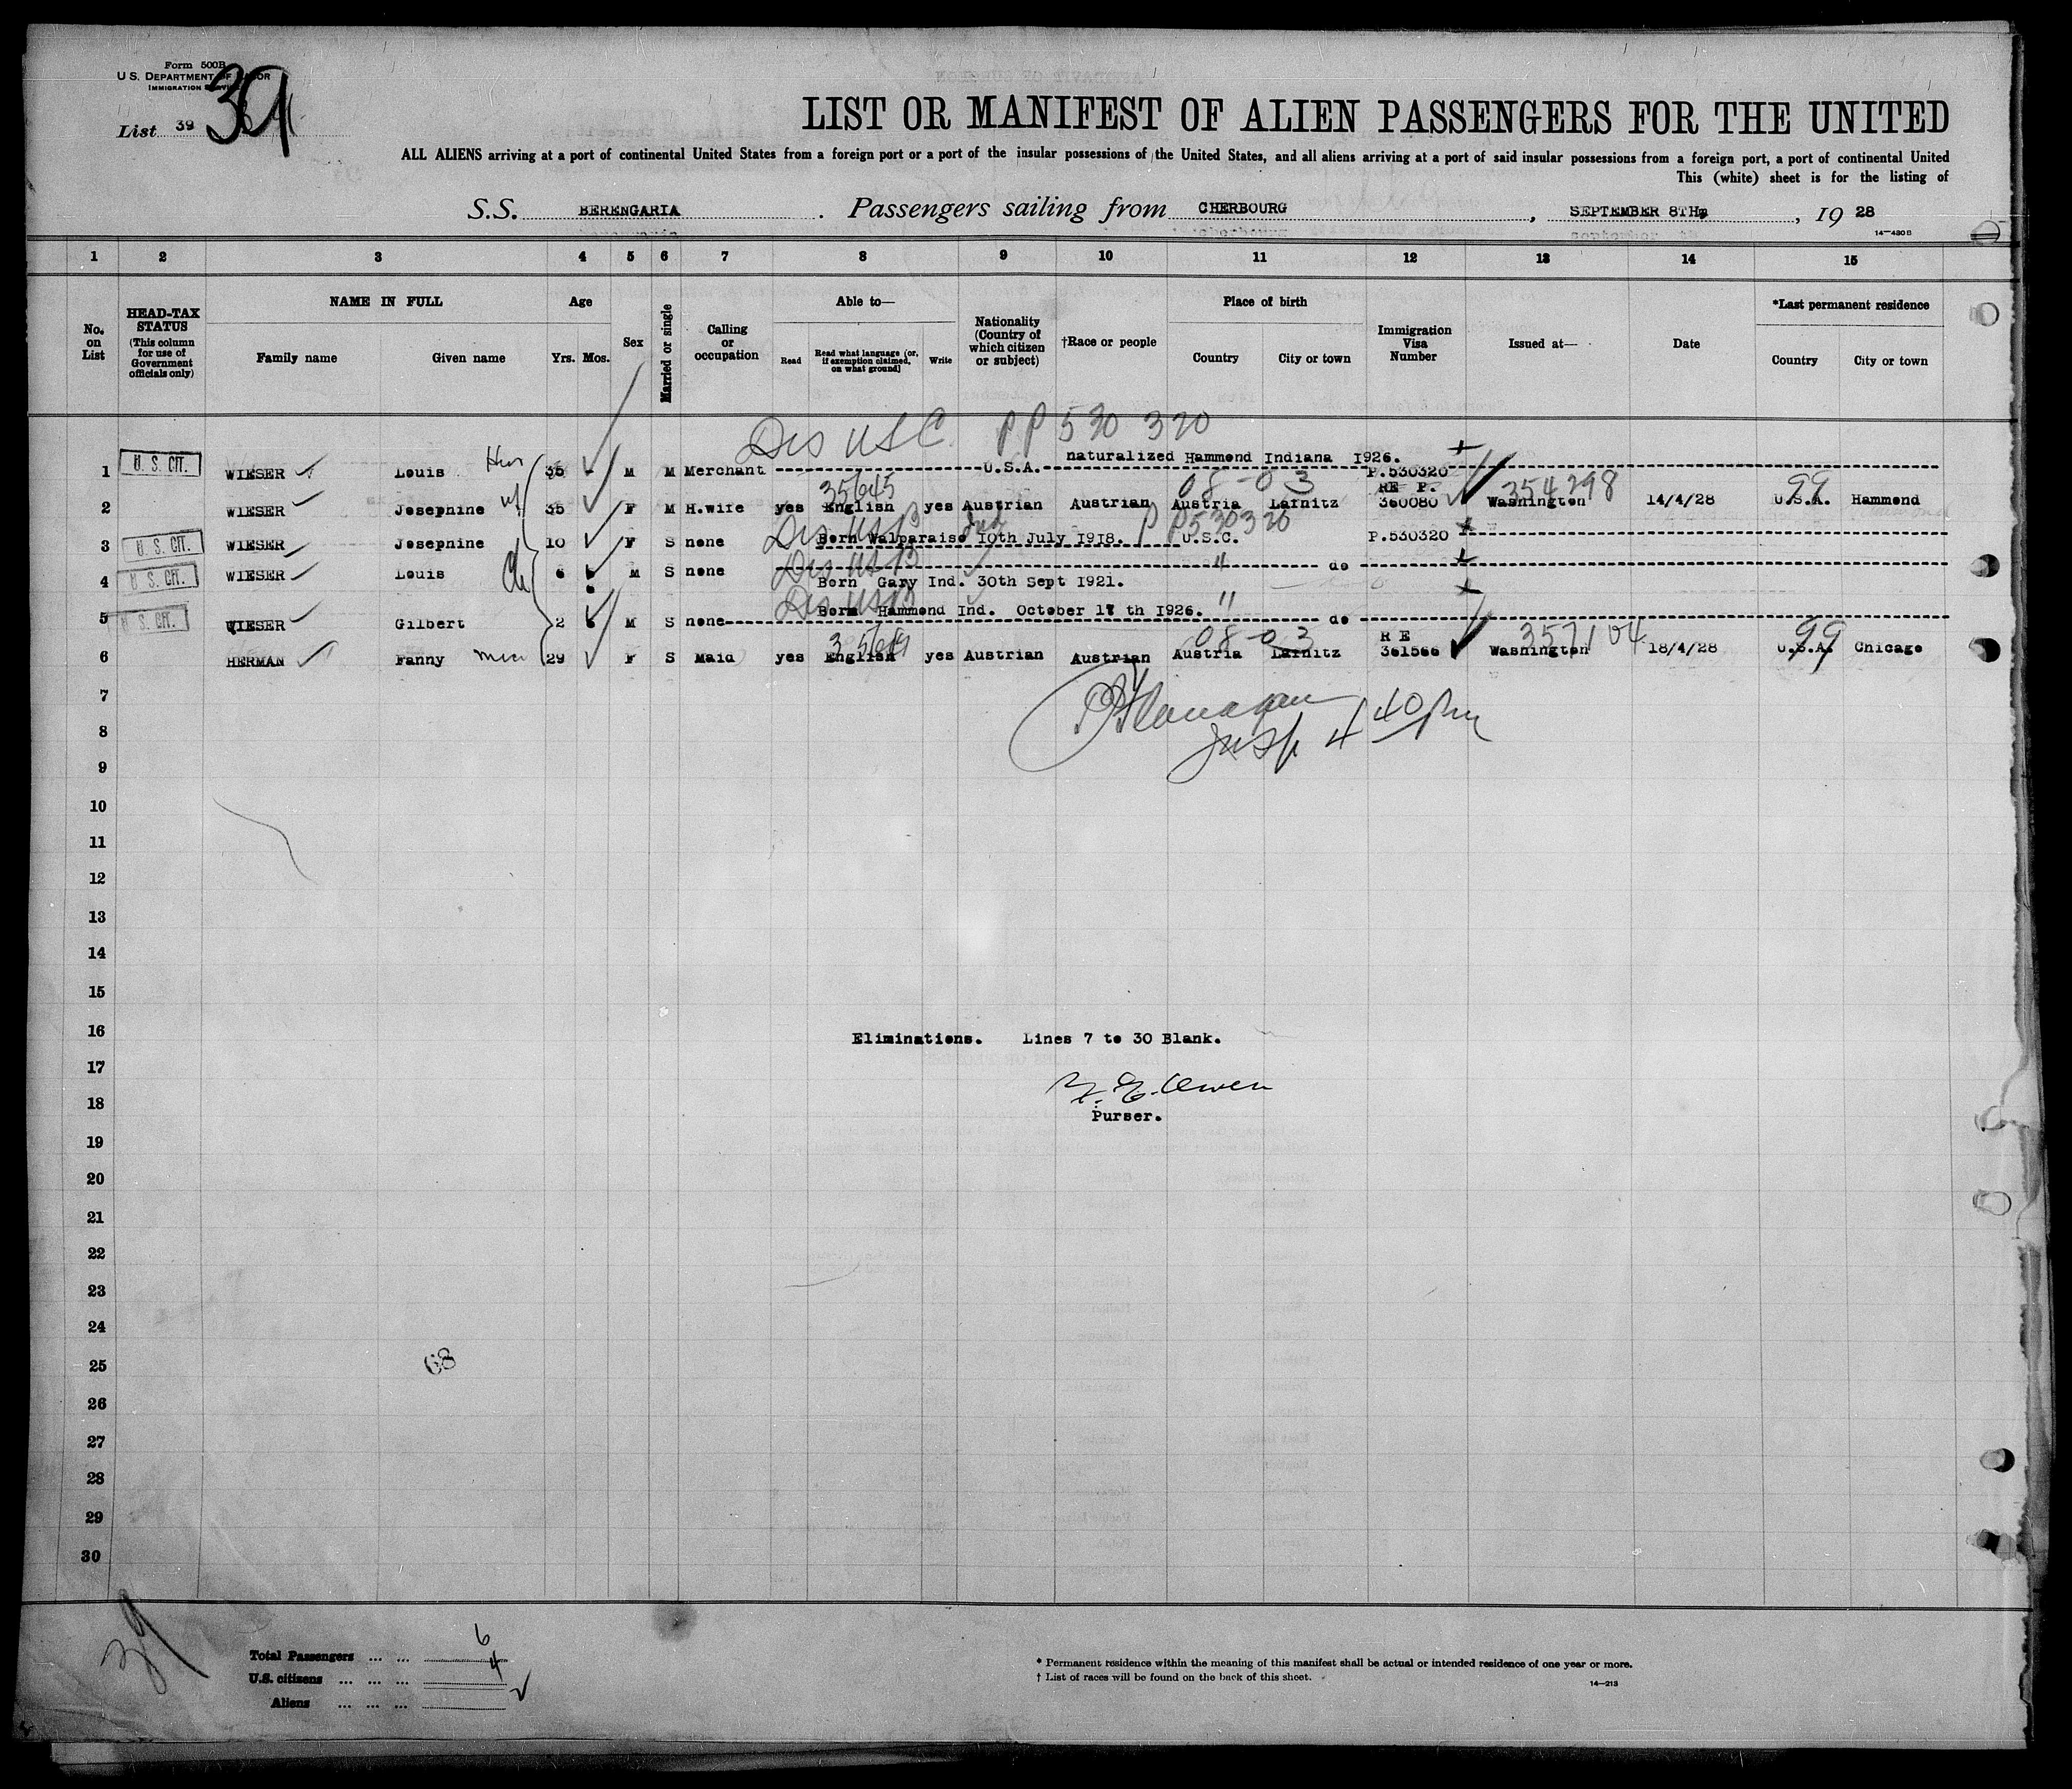 Form 500B
U. S. DEPARTMENT OF LABOR
IMMIGRATION SERVICE
List 39 39
LIST OR MANIFEST OF ALIEN PASSENGERS FOR THE UNITED
ALL ALIENS arriving at a port of continental United States from a foreign port or a port of the insular possessions of the United States, and all aliens arriving at a port of said insular possessions from a foreign port, a port of continental United
This (white) sheet is for the listing of
S.S. BERENGARIA. Passengers sailing from CHERBOURG, SEPTEMBER 8TH, 19 28
14—430 B
1 2 3 4 5 6 7 8 9 10 11 12 13 14 15
No. on List
HEAD-TAX STATUS (This column for use of Government officials only)
NAME IN FULL
Family name Given name
Age
Yrs. Mos.
Sex
Married or single
Calling or occupation
Able to—
Read
Read what language (or, if exemption claimed, on what ground)
Write
Nationality (Country of which citizen or subject)
†Race or people
Place of birth
Country City or town
Immigration Visa Number
Issued at—
Date
*Last permanent residence
Country City or town
Dis USC PP 530 320
naturalized Hammond Indiana 1926.
1 U. S. CIT. WIESER Louis 35 - M M Merchant U.S.A. P.530320
35645 08-03 RE P. 354298 99
2 WIESER Josephine wf 35 F M H.wife yes English yes Austrian Austrian Austria Lafnitz 360080 Washington 14/4/28 U.S.A. Hammond
Dis USB Ind PP 530320
3 U. S. CIT. WIESER Josephine 10 F S none Born Walparaise 10th July 1918. U.S.C. P.530320
Dis USB "
4 U. S. CIT. WIESER Louis Ch 6 M S none do
Born Gary Ind. 30th Sept 1921.
Dis USB "
Born Hammond Ind. October 17 th 1926.
5 U. S. CIT. WIESER Gilbert 2 M S none do
08-03 R E 357104 99
6 HERMAN Fanny 29 F S Maid yes English yes Austrian Austrian Austria Lafnitz 361566 Washington 18/4/28 U.S.A. Chicago
7
Insp 4 40 pm
8
9
10
11
12
13
14
15
16 Eliminations. Lines 7 to 30 Blank.
17
18 Owen
Purser.
19
20
21
22
23
24
25 68
26
27
28
29
30
39
Total Passengers ... ... 6
U.S. citizens ... ... ... 4
Aliens ... ... ... 2
* Permanent residence within the meaning of this manifest shall be actual or intended residence of one year or more.
† List of races will be found on the back of this sheet.
14—213